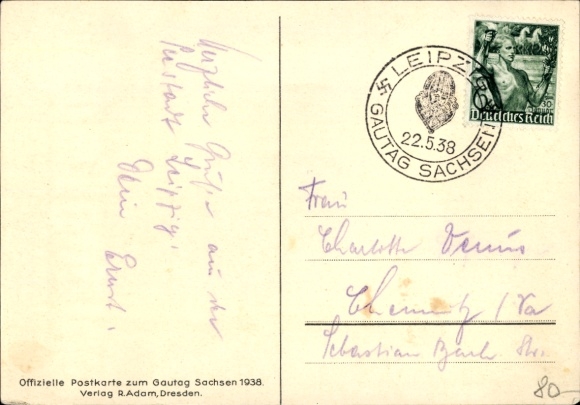 Herzliche Grüße aus der
Pestadt Leipzig.
Dein Ernst.
LEIPZIG
GAUTAG SACHSEN
22.5.38
30.
Januar
Deutsches Reich
Frau
Charlotte Venus
Chemnitz / Sa
Sebastian Bach Str.
Offizielle Postkarte zum Gautag Sachsen 1938.
Verlag R. Adam, Dresden.
80-